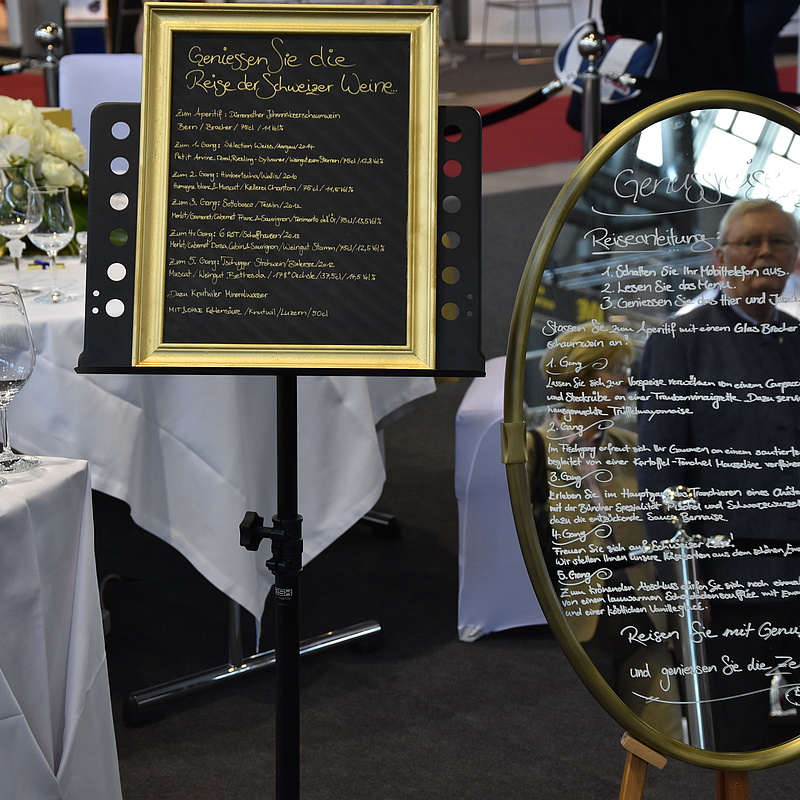 Geniessen Sie die
Reise der Schweizer Weine..
Zum Aperitif: Johanniterschaumwein
Bern / Bracher / 75cl / 11 Vol%
Zum 1. Gang: Sélection Weiss/Aargau/2014
Petit Arvine, Doral, Riesling-Sylvaner/Weingut zum Sternen/75cl/12,8 Vol%
Zum 2. Gang: Wallis/2010
Humagne blanc & Muscat/Kellerei Chanton/75cl/11,5 Vol%
Zum 3. Gang: Sottobosco/Tessin/2012
Merlot/Gamaret/Cabernet Franc & Sauvignon/Tenimento dell'Ör/75cl/13,5 Vol%
Zum 4. Gang: G ROT/Schaffhausen/2013
Merlot, Cabernet Dorsa, Cabernet Sauvignon/Weingut Stamm/75cl/12,5 Vol%
Zum 5. Gang: Tschugger Strohwein/Bielersee/2012
Muscat/Weingut Bethesda/178° Oechsle/37,5cl/14,5 Vol%
Dazu Knutwiler Mineralwasser
MIT/OHNE Kohlensäure/Knutwil/Luzern/50cl
Genussreise
Reiseanleitung
1. Schalten Sie Ihr Mobiltelefon aus.
2. Lesen Sie das Menu.
3. Geniessen Sie das Hier und Jetzt
Stossen Sie zum Aperitif mit einem Glas Bracher
schaumwein an!
1. Gang
Lassen Sie sich zur Vorspeise verwöhnen von einem Carpaccio
und Steckrübe an einer Traubenvinaigrette. Dazu
hausgemachte Trüffelmayonnaise
2. Gang
Im Fischgang erfreut sich Ihr Gaumen an einem sautierten
begleitet von einer Kartoffel-Fenchel
3. Gang
Erleben Sie im Hauptgang das Tranchieren eines
mit der Bündner Spezialität und Schwarzwurzel
dazu die entzückende Sauce Bernaise.
4. Gang
Freuen Sie sich auf Schweizer Käse!
Wir stellen Ihnen unsere Käsesorten aus dem schönen
5. Gang
Zum krönenden Abschluss dürfen Sie sich noch einmal
von einem lauwarmen Schokoladensoufflée mit
und einer köstlichen Vanilleglace.
Reisen Sie mit Genuss
und geniessen Sie die